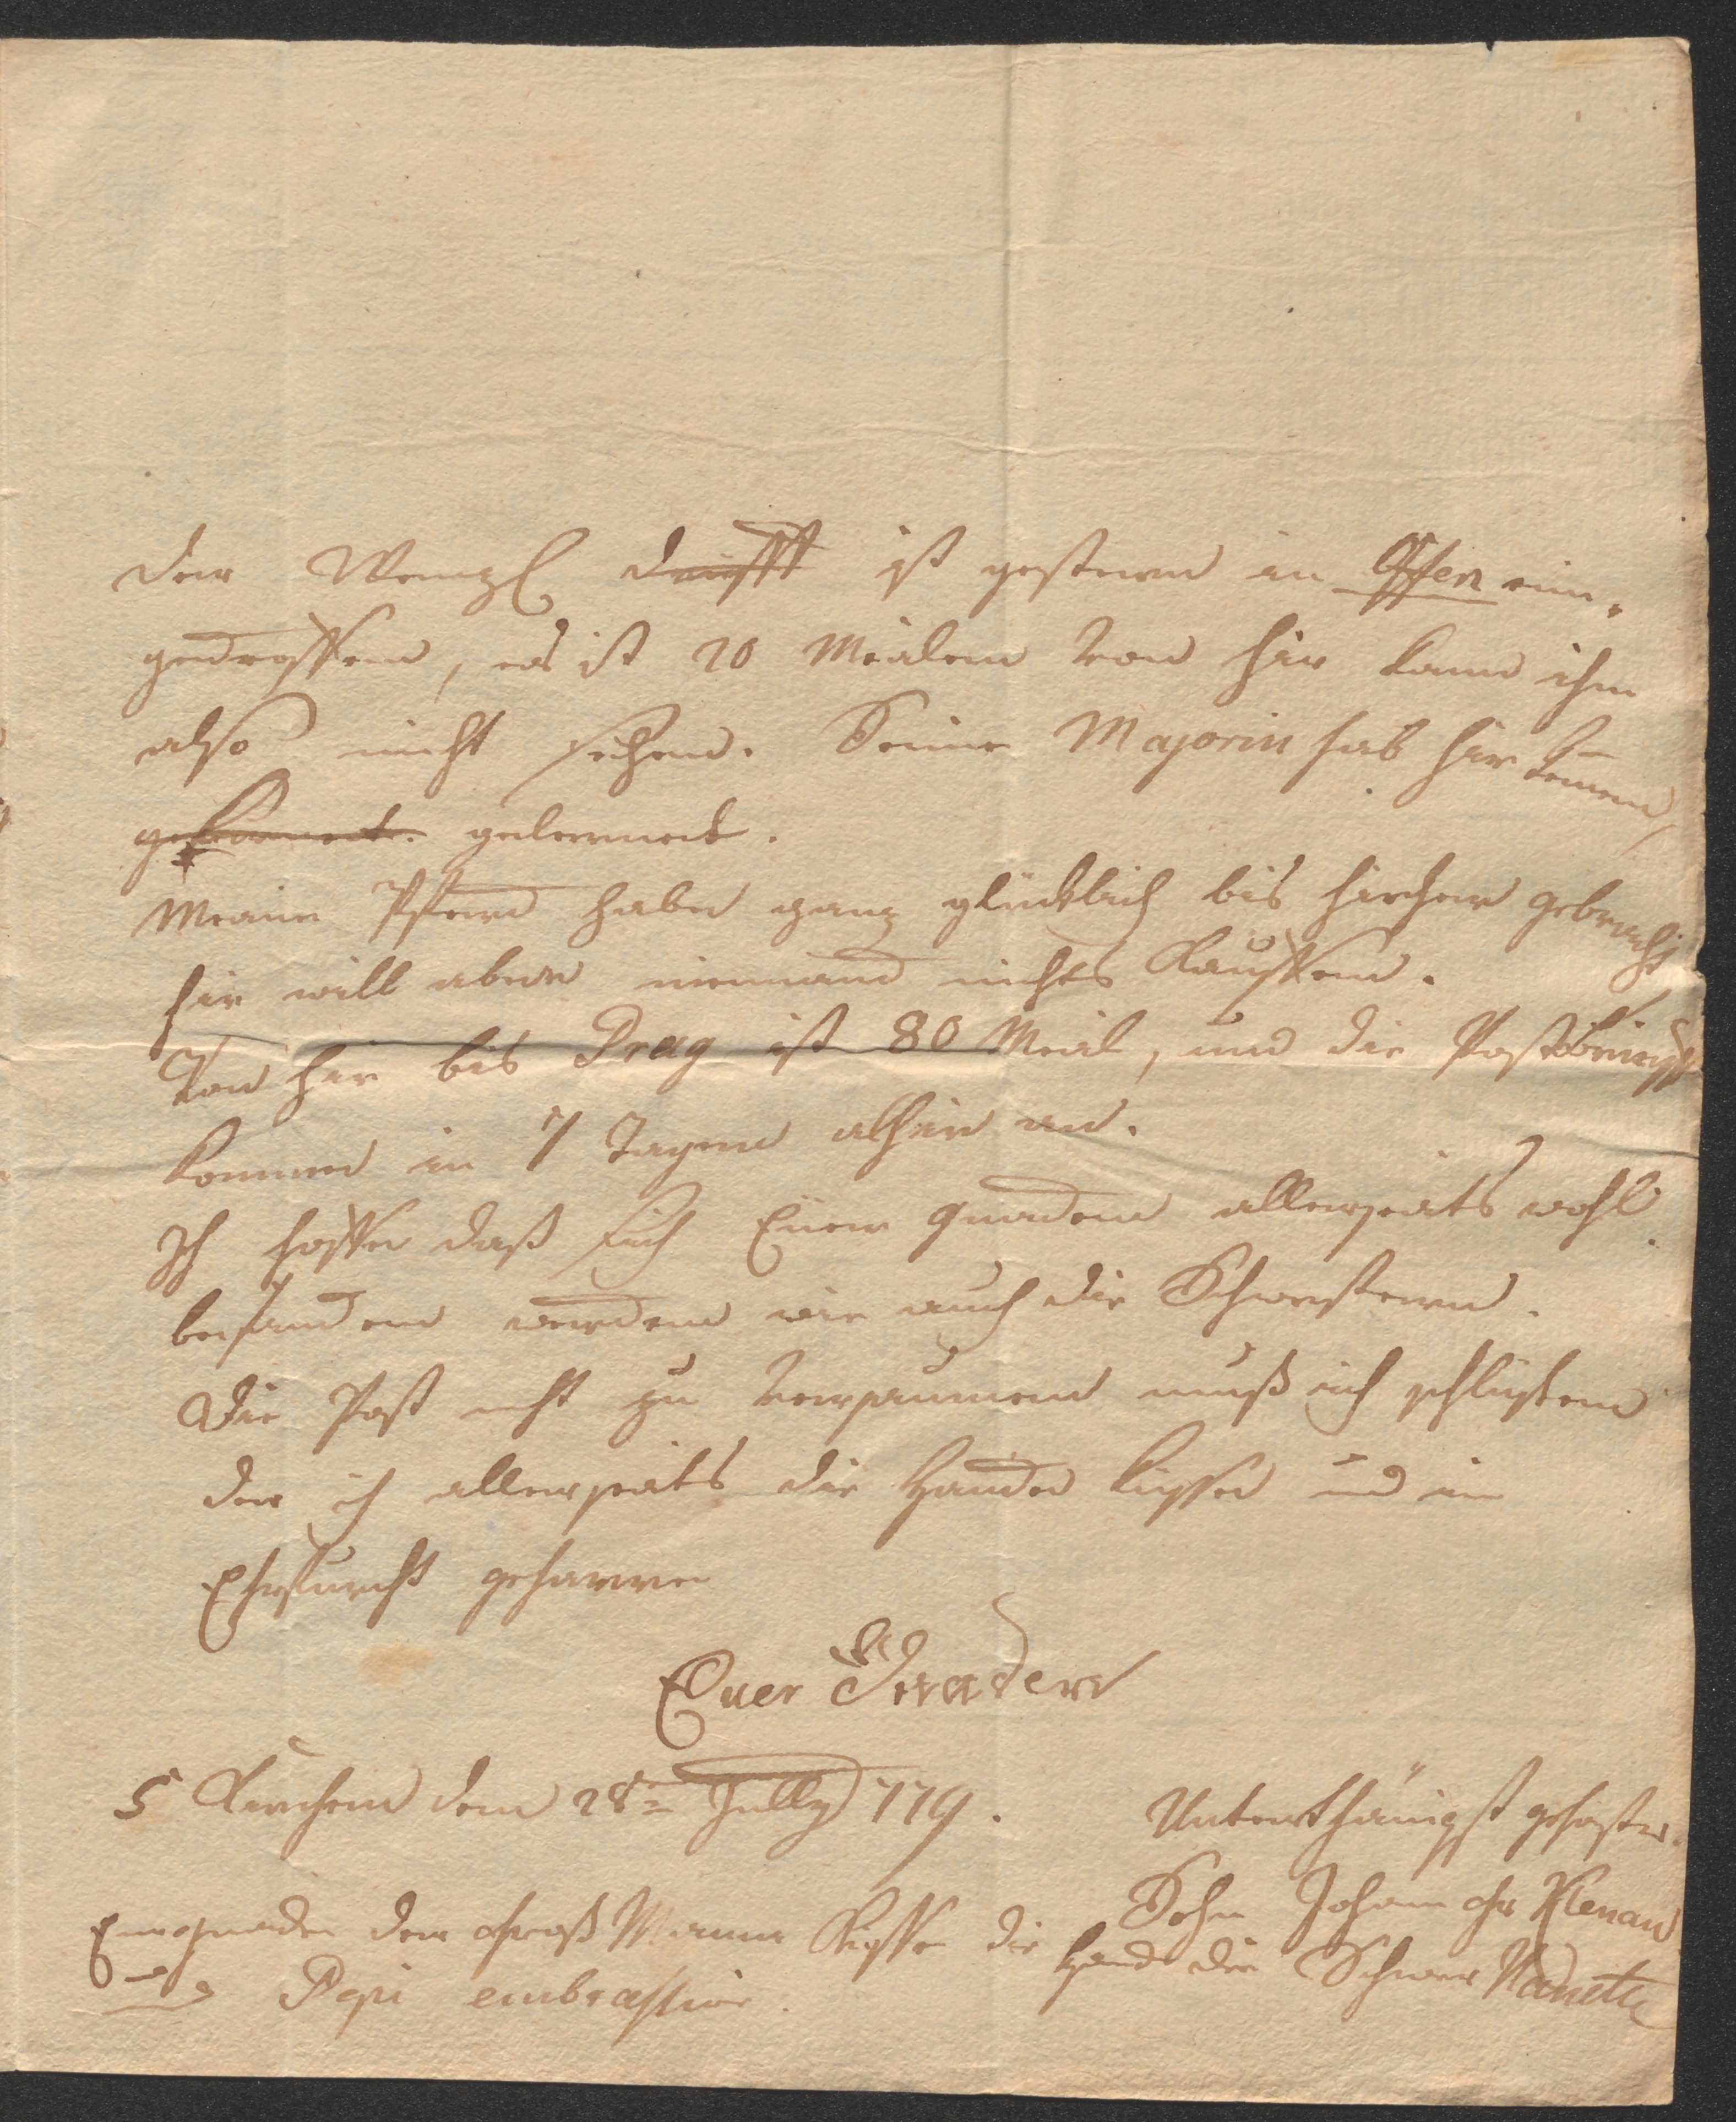 der Wenzl ist gestern in Offen ein-
getroffen, es ist 20 Meilen von hir kann ihm
also nicht sehen. Seine Majorin hab hir kennen,
gelernnet.
Meine Pferd habe ganz glücklich bis hirher gebracht
hir will aber niemand nichts Kauffen.
Von hir bis Prag ist 80 Meil, und die Post brieffe
kommen in 7 Tagen alhir an.
Ich hoffe daß sich Euer Gnaden allerseits wohl
befinden werden wie auch die Schwestern.
Die Post nicht zu versaumen muß ich schlüssen
der ich allerseits die Hände küsse und in
Ehrfurcht geharre
Euer Gnaden
5 Kirchen den 28ten Jully 779.
Unterthänigst gehorster
Sohn Johann Klenau
Euer Gnaden der Groß Mama Küsse die Hände die Schwer Nanette
Pepi embrassire.